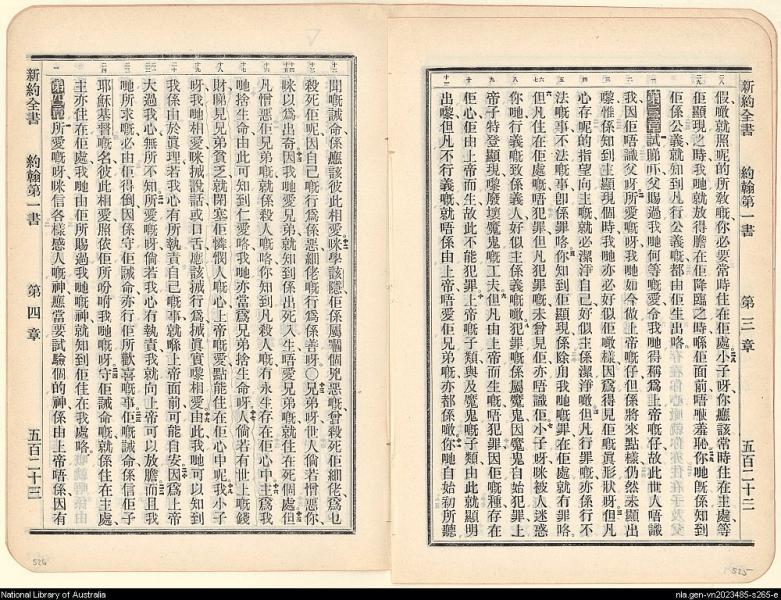 新約全書 約翰第一書 第三章 五百二十三
假噉就照呢的所敎嘅你必要常時住在主處小子呀你應該常時住在主處等
佢顯現之時我哋就放得膽在佢降臨之時喺佢面前唔嘥羞恥你哋旣係知到
佢係公義就知到凡行公義嘅都由佢生出咯
第三章試睇吓父賜過我哋何等嘅愛令我哋得稱爲上帝嘅仔故此世人唔識
我因佢唔識父呀所愛嘅呀我哋如今做上帝嘅仔但係將來點樣仍然未顯出
嚟惟係知到主顯現個時我哋亦必好似佢噉樣因爲得見佢嘅眞形狀呀但凡
心存呢的指望向主嘅就必潔淨自己好似主係潔淨噉但凡行罪嘅亦係行不
法嘅事不法嘅事卽係罪咯你知到佢顯現係除我哋嘅罪在佢處就有罪咯
但凡住在佢處嘅唔犯罪但凡犯罪嘅未曾見佢亦唔識佢小子呀咪被人迷惑
你哋行義嘅致係義人好似主係義嘅噉犯罪嘅係屬魔鬼因魔鬼自始犯罪上
帝子特登顯現嚟廢壞魔鬼嘅工夫但凡由上帝而生嘅唔犯罪因佢嘅種存在
佢心佢由上帝而生故此不能犯罪上帝嘅子類與及魔鬼嘅子類由此就顯明
出嚟但凡不行義嘅就唔係由上帝唔愛佢兄弟嘅亦都係噉你哋自始初所聽
聞嘅誡命係應該彼此相愛咪學該隱佢係屬嗰個兇惡嘅曾殺死佢細佬爲乜
殺死佢呢因自己嘅行爲係惡細佬嘅行爲係善呀〇兄弟呀世人倘若憎惡你
咪以爲出奇因我哋愛兄弟就知到係出死入生唔愛兄弟嘅就住在死個處但
凡憎惡佢兄弟嘅就係殺人嘅咯你知到凡殺人嘅冇永生存在佢心中主爲我
哋捨生命由此可知到仁愛咯我哋亦當爲兄弟捨生命呀人倘若有世上嘅錢
財睇見兄弟貧乏就閉塞佢憐憫人嘅心上帝嘅愛點能住在佢心中呢我小子
呀我哋相愛咪掋說話或口舌應該掋行爲掋眞實嚟相愛由此我哋可以知到
我係由於眞理若我心有所執責自己嘅事就喺上帝面前可能自安因爲上帝
大過我心無所不知所愛嘅呀倘若我心冇執責我就向上帝可以放膽而且我
哋所求嘅必由佢得倒因係守佢誡命亦行佢所歡喜嘅事佢嘅誡命係信佢子
耶穌基督嘅名彼此相愛照依佢所吩咐我哋嘅呀守佢誡命嘅就係住在主處
主亦住在佢處我哋由佢所賜過我哋嘅神就知到佢住在我處咯
第四章所愛嘅呀咪信各樣感人嘅神應當要試驗個的神係由上帝唔係因有
新約全書 約翰第一書 第四章 五百二十三
526
525
National Library of Australia
nla.gen-vn2023485-s265-e